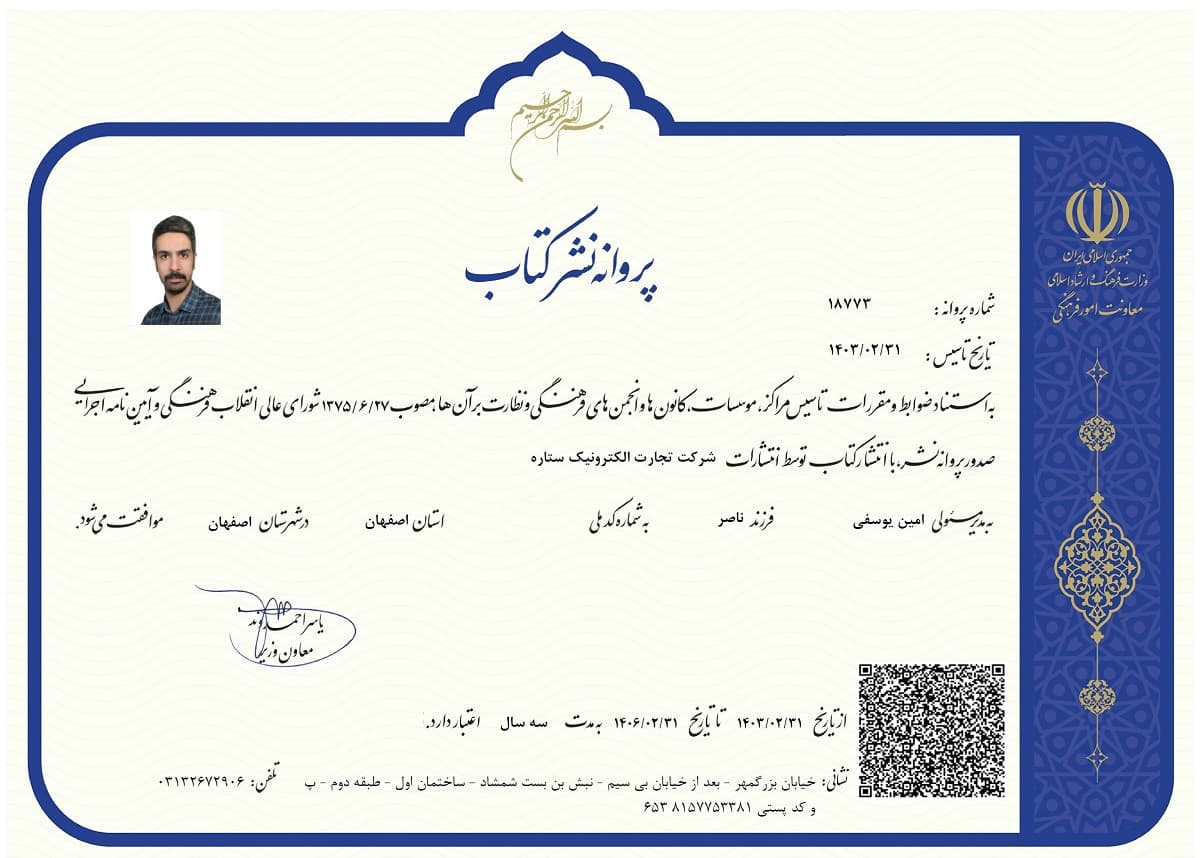 بسم الله الرحمن الرحیم
جمهوری اسلامی ایران
وزارت فرهنگ و ارشاد اسلامی
معاونت امور فرهنگی
پروانه نشر کتاب
شماره پروانه: ۱۸۷۷۳
تاریخ تاسیس: ۱۴۰۳/۰۲/۳۱
به استناد ضوابط و مقررات تاسیس مراکز، موسسات، کانون ها و انجمن های فرهنگی و نظارت بر آن ها، مصوب ۱۳۷۵/۶/۲۷ شورای عالی انقلاب فرهنگی و آیین نامه اجرایی
صدور پروانه نشر، با انتشار کتاب توسط انتشارات شرکت تجارت الکترونیک ستاره
به مدیر مسئولی امین یوسفی فرزند ناصر به شماره کد ملی استان اصفهان در شهرستان اصفهان موافقت می شود.
یاسر احمدوند
معاون وزیر
از تاریخ ۱۴۰۳/۰۲/۳۱ تا تاریخ ۱۴۰۶/۰۲/۳۱ به مدت سه سال اعتبار دارد.
نشانی: خیابان بزرگمهر - بعد از خیابان بی سیم - نبش بن بست شمشاد - ساختمان اول - طبقه دوم - پ تلفن: ۰۳۱۳۲۶۷۲۹۰۶
و کد پستی ۸۱۵۷۷۵۳۳۸۱ ۶۵۳